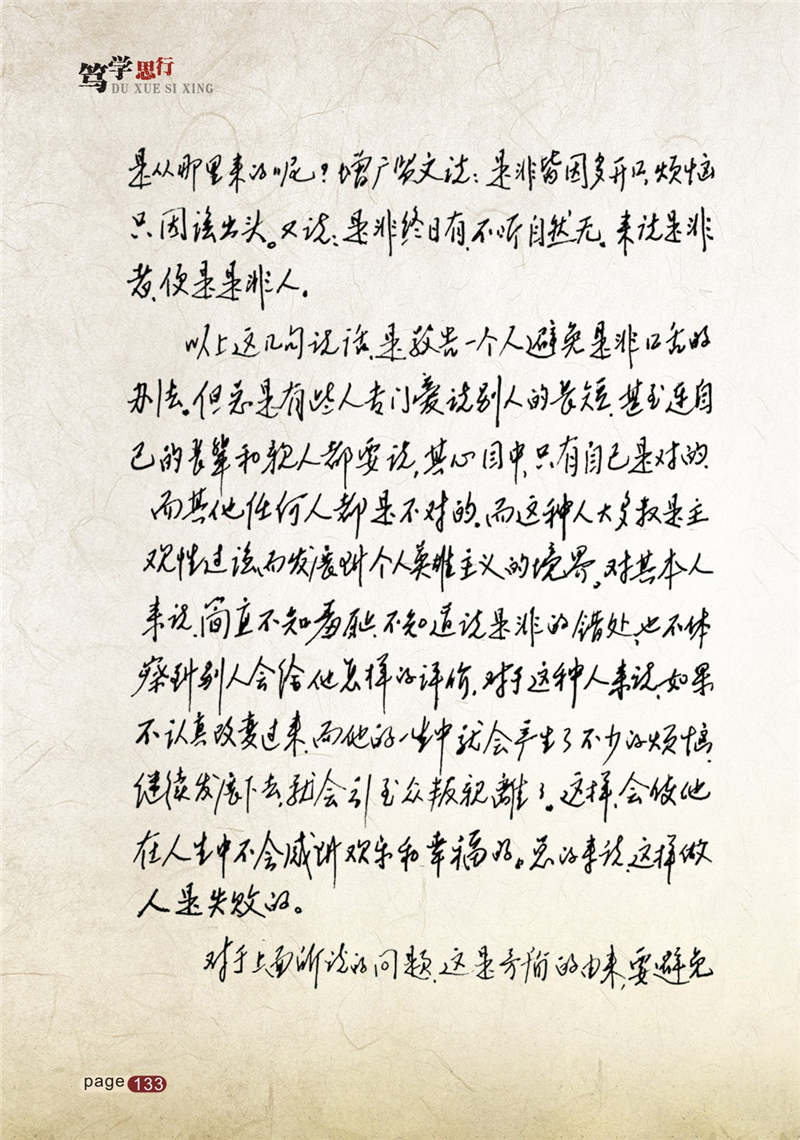 笃学思行
DU XUE SI XING
是从那里来的呢？增广贤文说：是非皆因多开口，烦恼
只因强出头。又说：是非终日有，不听自然无。来说是非
者，便是是非人。
以上这几句说话，是敬告一个人避免是非口舌的
办法。但总是有些人专门爱说别人的长短，甚至连自
己的长辈和亲人都要说，其心目中，只有自己是对的，
而其他任何人都是不对的，而这种人大多数是主
观性过强，而发展到个人英雄主义的境界。对其本人
来说，简直不知羞耻，不知道说是非的错处，也不体
察到别人会给他怎样的评价，对于这种人来说，如果
不认真改变过来，而他的一生中就会产生了不少的烦恼，
继续发展下去，就会引至众叛亲离了。这样，会使他
在人生中不会感到欢乐和幸福的。总的来说，这样做
人是失败的。
对于上面所说的问题，这是矛盾的由来，要避免
page 133